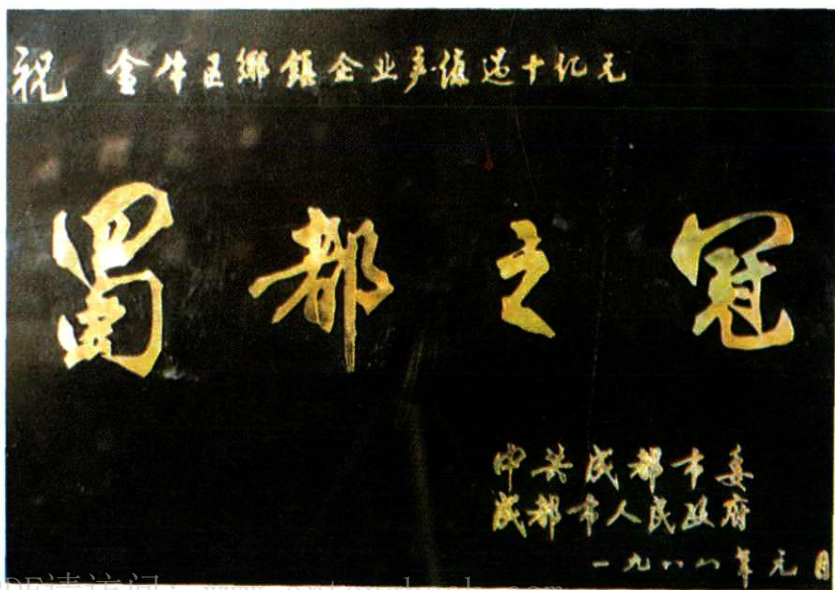 祝 金牛区乡镇企业产值过十亿元
蜀都之冠
中共成都市委
成都市人民政府
一九八八年元月